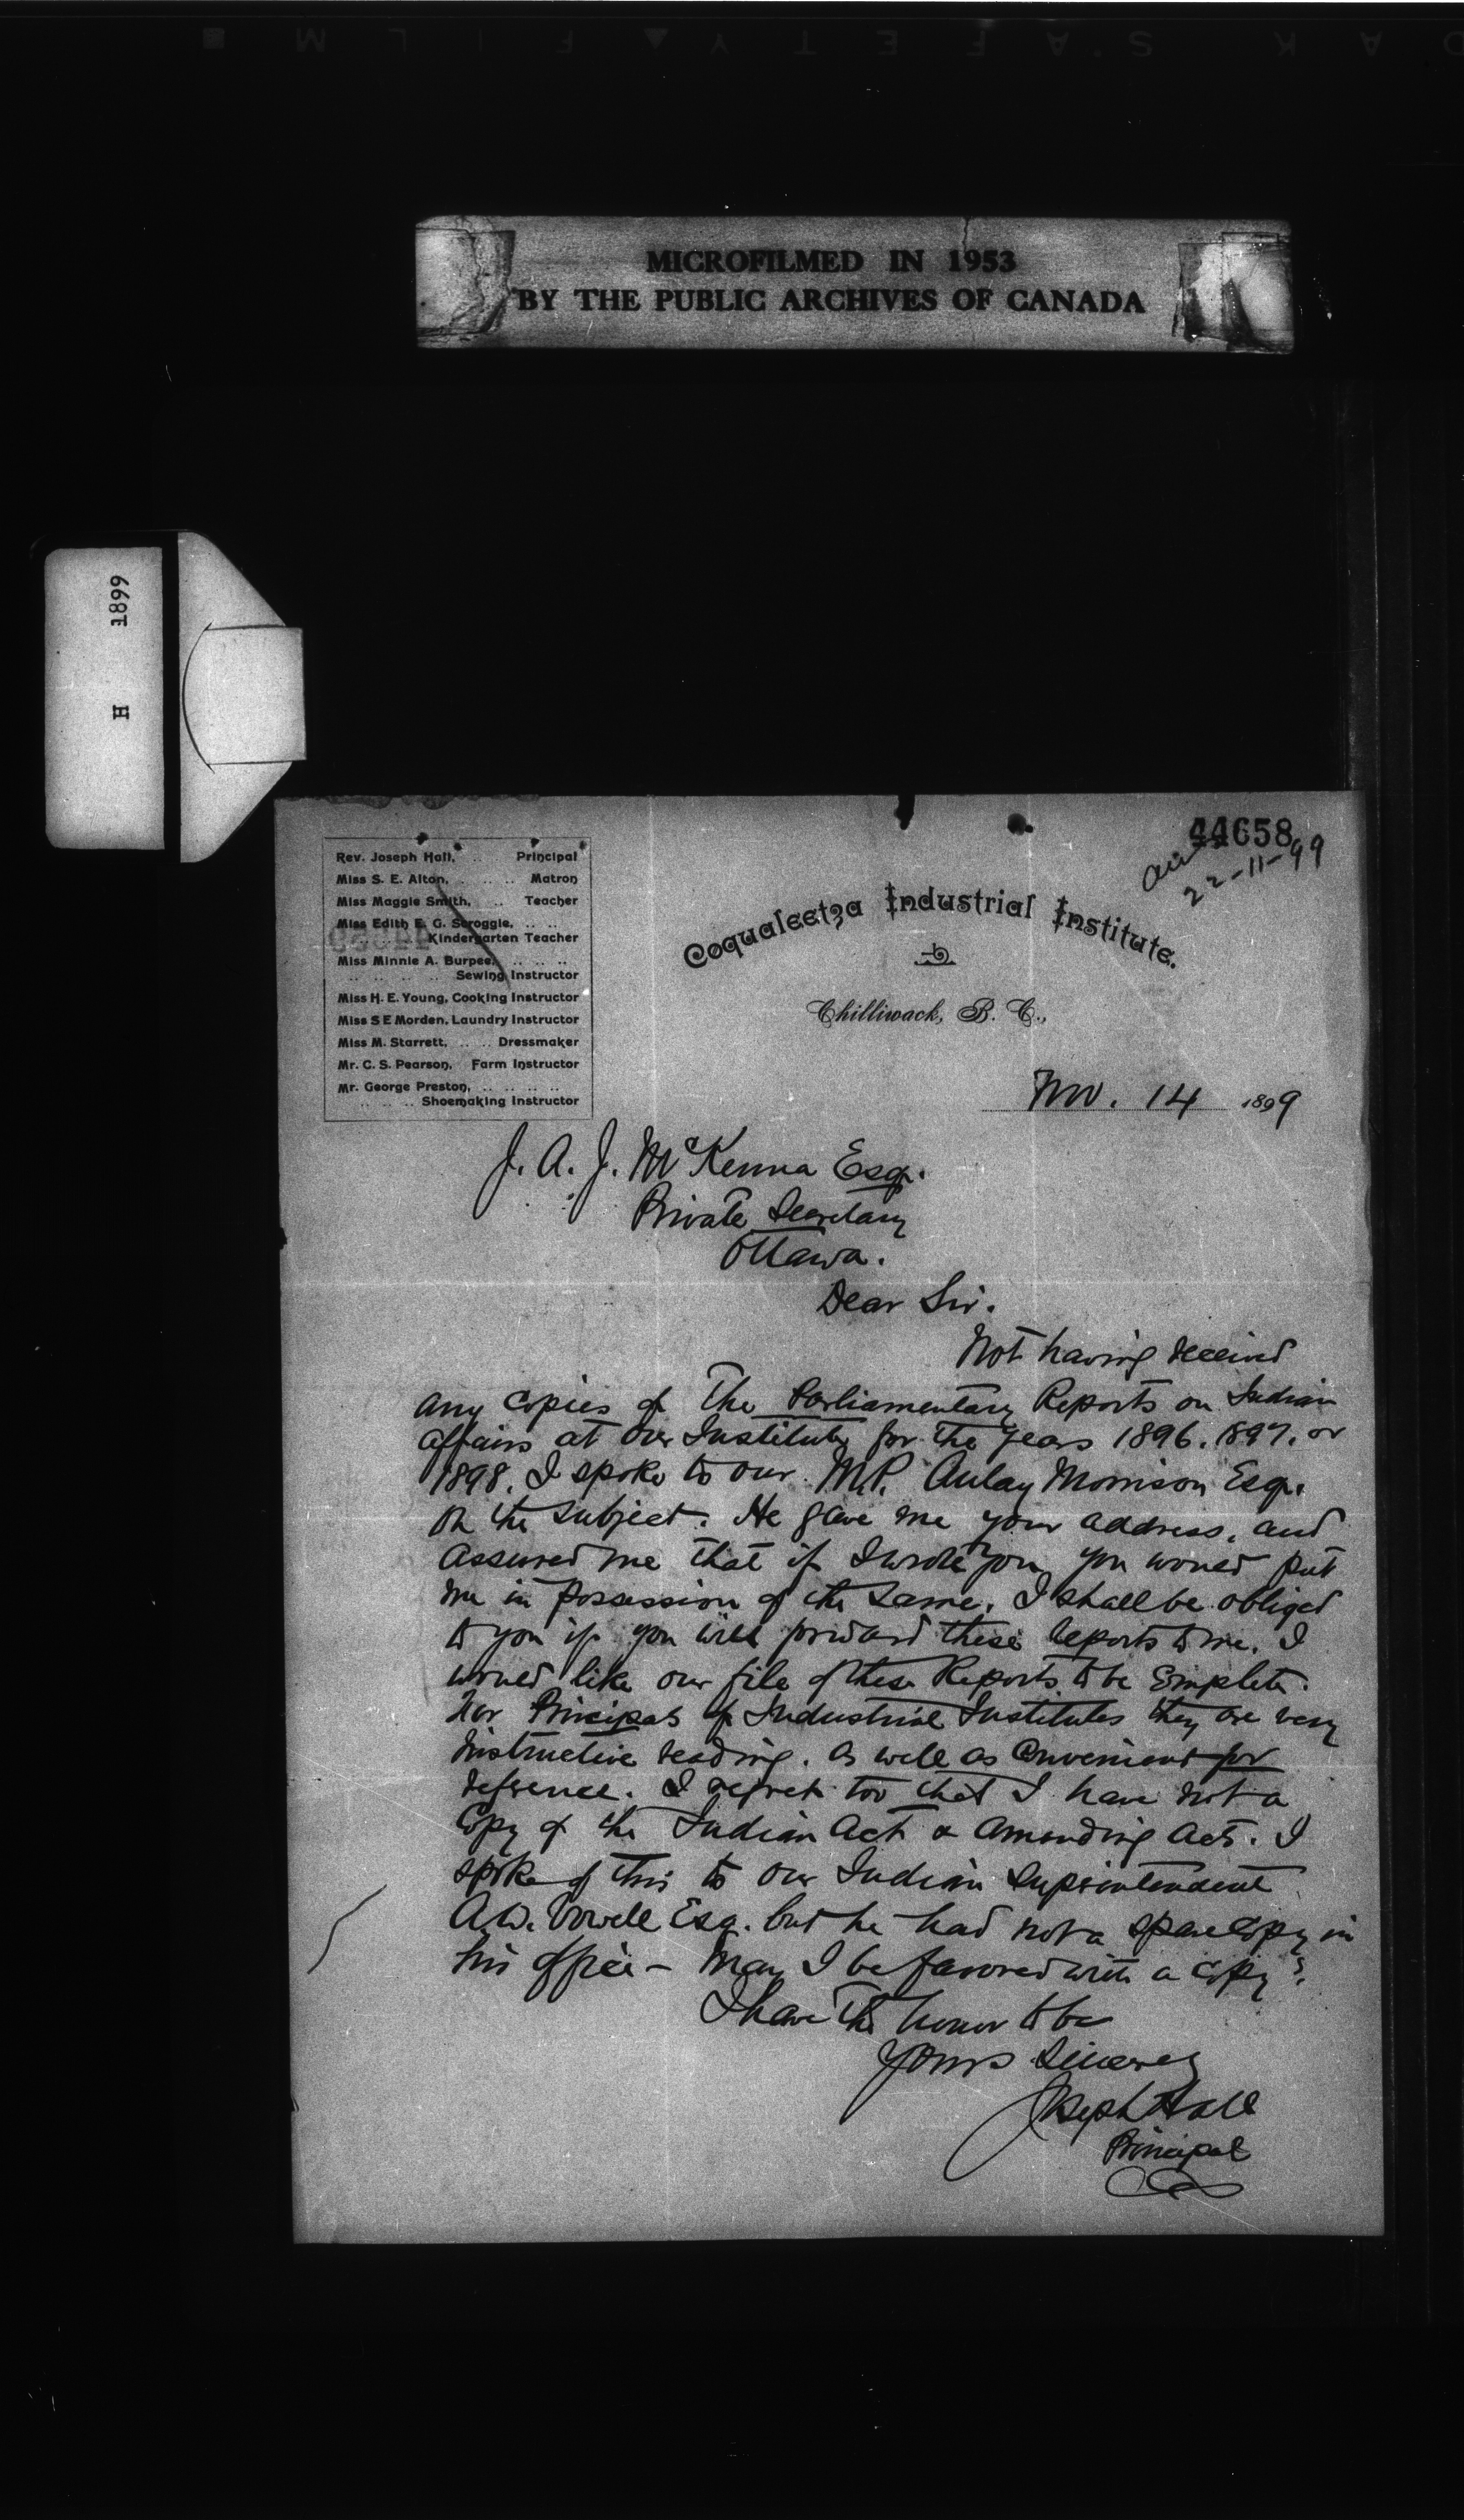 MICROFILMED IN 1953
BY THE PUBLIC ARCHIVES OF CANADA
H 1899
44658
22-11-99
Rev. Joseph Hall, .. Principal
Miss S. E. Alton, .. .. .. Matron
Miss Maggie Smith, .. Teacher
Miss Edith E. G. Scroggie, .. ..
Kindergarten Teacher
Miss Minnie A. Burpee, .. .. ..
.. .. .. .. Sewing Instructor
Miss H. E. Young, Cooking Instructor
Miss S E Morden, Laundry Instructor
Miss M. Starrett, .. .. Dressmaker
Mr. C. S. Pearson, Farm Instructor
Mr. George Preston, .. .. .. ..
.. .. .. Shoemaking Instructor
Coqualeetza Industrial Institute.
Chilliwack, B. C.,
Nov. 14 1899
J. A. J. McKenna Esqr.
Private Secretary
Ottawa.
Dear Sir.
Not having received
any copies of The Parliamentary Reports on Indian
Affairs at our Institute for the years 1896. 1897. or
1898. I spoke to our M.P. Aulay Morrison Esqr.
on the subject. He gave me your address, and
assured me that if I wrote you you would put
me in possession of the same. I shall be obliged
to you if you will forward these Reports to me. I
would like our file of these Reports to be Complete.
For Principals of Industrial Institutes they are very
instructive reading. as well as convenient for
reference. I regret too that I have not a
Copy of the Indian Act & Amending Acts. I
spoke of this to our Indian Superintendent
A.W. Vowell Esq. but he had not a spare copy in
his office — May I be favored with a copy?
I have the honor to be
Yours Sincerely
Joseph Hall
Principal